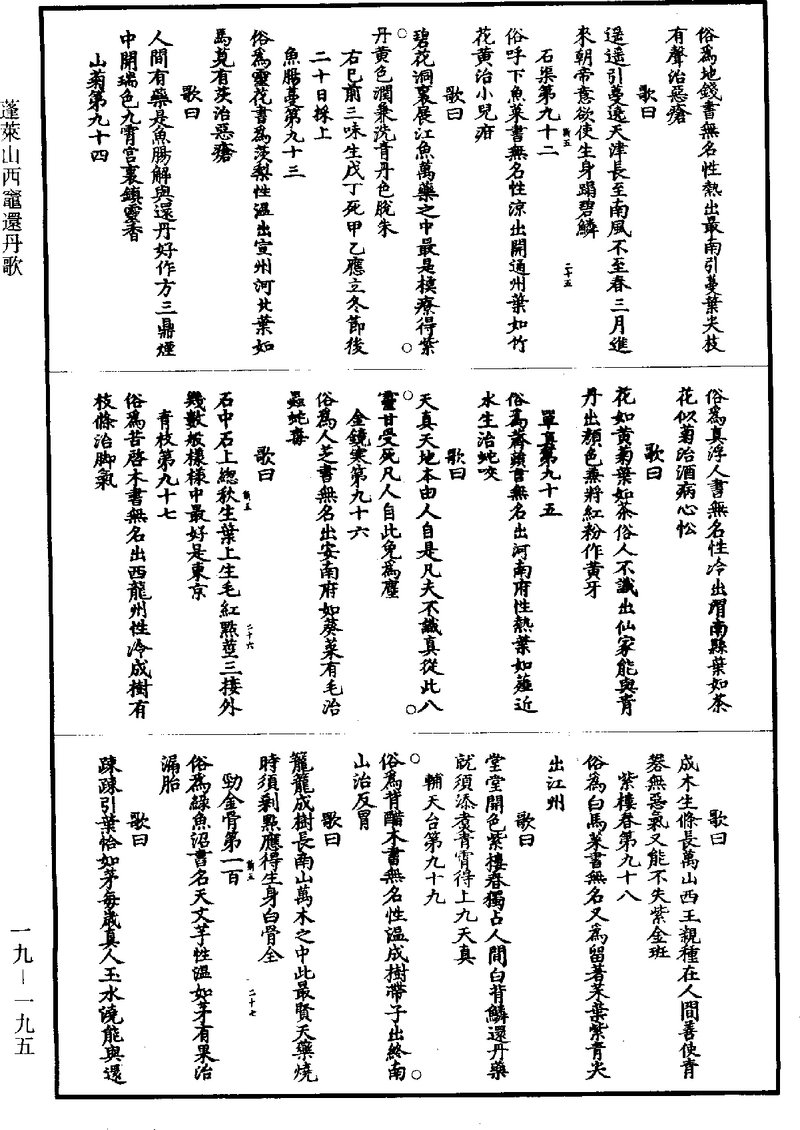 俗爲地錢書無名性熱出最南引蔓葉尖枝
有聲治惡瘡
歌曰
遥遥引蔓透天津長至南風不至春三月進
來朝帝意欲使生身蹋碧鱗
石渠第九十二
俗呼下魚菜書無名性涼出開通州葉如竹
花黄治小兒疳
歌曰
碧花洞裏展江魚萬藥之中最是橂療得紫
丹黄色潤兼洗青丹色脫朱
右巳前三味生戊丁死甲乙應立冬節後
二十日採上
魚腸蔓第九十三
俗爲靈花書爲茨梨性温出宣州河北葉如
馬莧有茨治惡瘡
歌曰
人間有藥是魚腸解與還丹好作方三鼎煙
中開瑞色九霄宫裏鎮靈香
山菊第九十四
俗爲真浮人書無名性冷出渭南縣葉如茶
花似菊治酒病心忪
歌曰
花如黄菊葉如茶俗人不識出仙家能與青
丹出顏色無將紅粉作黄牙
單真第九十五
俗爲膏頭書無名出河南府性熱葉如薤近
水生治蛇咬
歌曰
天真天地本由人自是凡夫不識真從此八
靈甘受死凡人自此免爲塵
金鏡寒第九十六
俗爲人芝書無名出安南府如葵菜有毛治
蟲蛇毒
歌曰
石中石上緫秋生葉上生毛紅點莖三接外
幾數般樣樣中最好是東京
青枝第九十七
俗爲苦啓木書無名出西龍州性冷成樹有
枝條治脚氣
歌曰
成木生條長萬山西王親種在人間善使青
礬無惡氣又能不失紫金班
紫樓春第九十八
俗爲白馬菜書無名又爲留著菜葉紫青尖
出江州
歌曰
堂堂開色紫樓春獨占人間白背鱗還丹藥
就須添煑青霄得上九天真
輔天台第九十九
俗爲背醋木書無名性温成樹帶子出終南
山治反胃
歌曰
籠籠成樹長南山萬木之中此最賢天藥燒
時須剩點應得生身白骨全
勁金骨第一百
俗爲綠魚沼書名天文芋性温如茅有果治
漏胎
歌曰
踈踈引葉恰如茅每歲真人玉水澆能與還
蓬萊山西竈還丹歌
一九－一九五